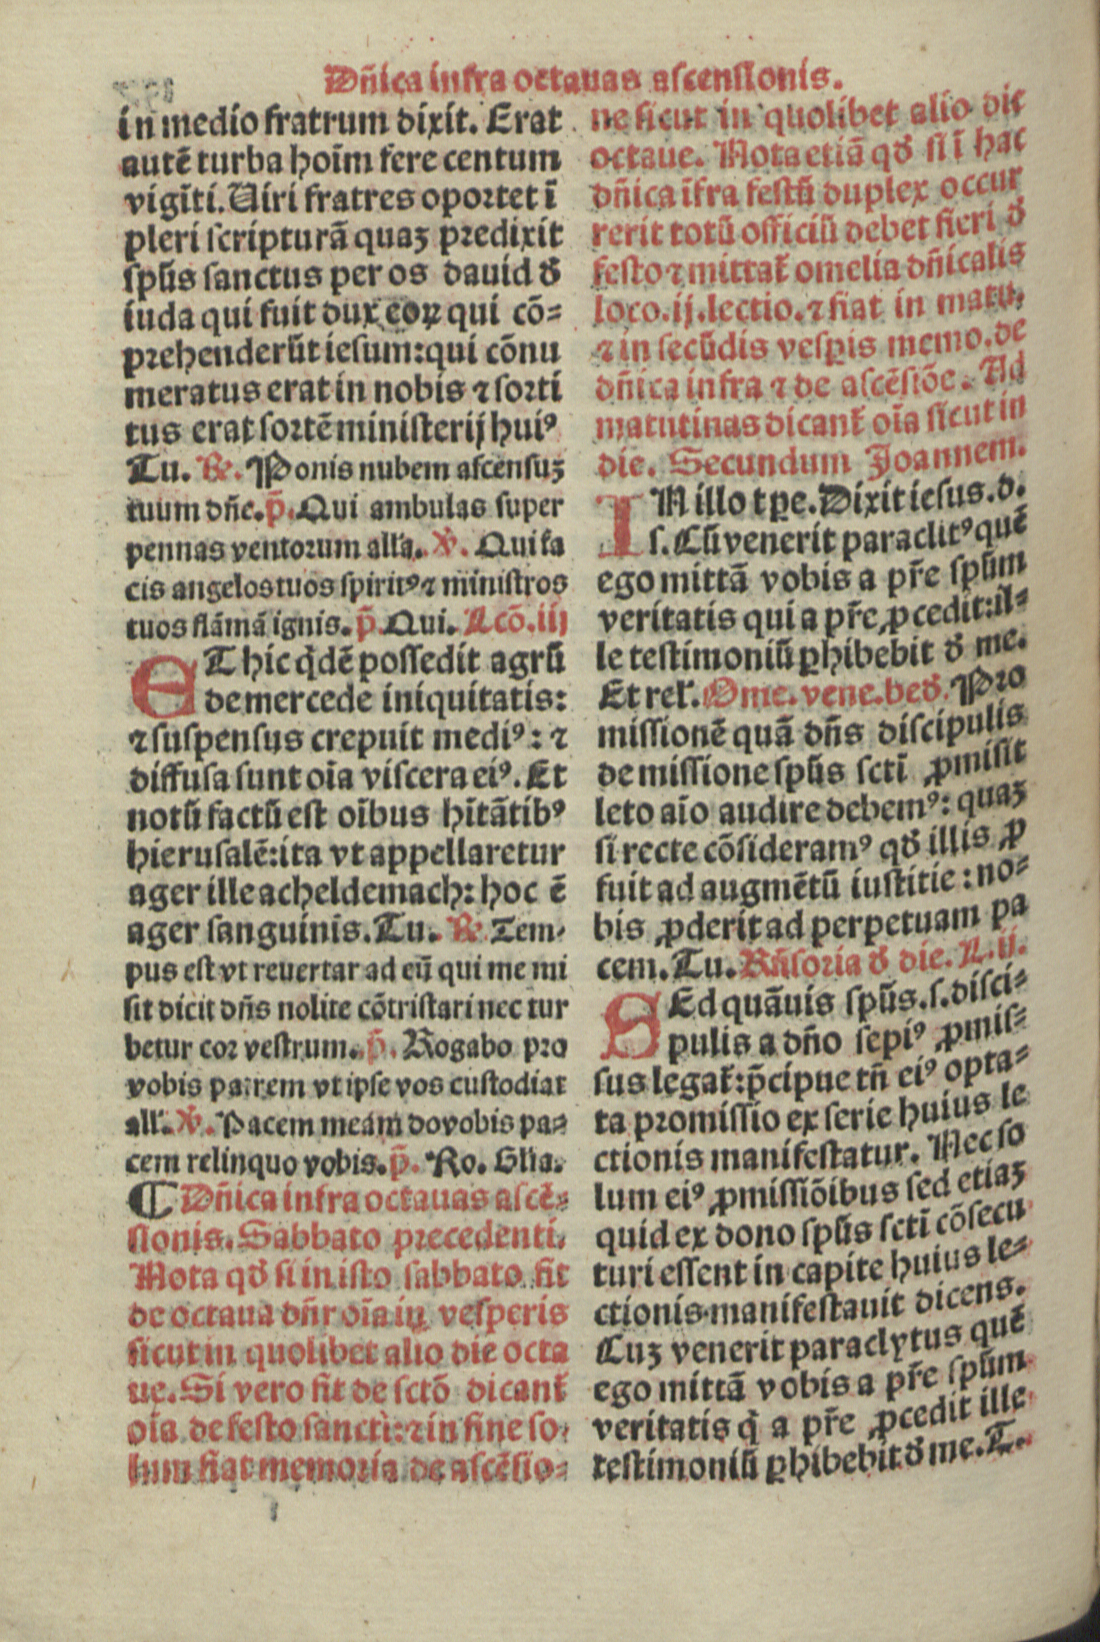 Dñica infra octauas ascensionis.
in medio fratrum dixit. Erat
autē turba hoīm fere centum
vigīti. Uiri fratres oportet ī
pleri scripturā quaꝫ predixit
spūs sanctus per os dauid đ
iuda qui fuit dux eoꝝ qui cō⸗
prehenderūt iesum: qui cōnu
meratus erat in nobis ⁊ sorti
tus erat sortē ministerij huiꝰ
Tu. ℟. Ponis nubem ascensuꝫ
tuum dñe. p̄. Qui ambulas super
pennas ventorum alľa. ℣. Qui fa
cis angelos tuos spiritꝰ ⁊ ministros
tuos flāmā ignis. p̄. Qui. Lcō. iij
ET hic qͥdē possedit agrū
de mercede iniquitatis:
⁊ suspensus crepuit mediꝰ: ⁊
diffusa sunt oīa viscera eiꝰ. Et
notū factū est oībus hītātibꝰ
hierusalē: ita vt appellaretur
ager ille acheldemach: hoc ē
ager sanguinis. Tu. ℟. Tem⸗
pus est vt reuertar ad eū qui me mi
sit dicit dñs nolite cōtristari nec tur
betur cor vestrum. p̄. Rogabo pro
vobis patrem vt ipse vos custodiat
alľ. ℣. Pacem meam do vobis pa⸗
cem relinquo vobis. p̄. Ro. Glia.
¶ Dñica infra octauas ascē⸗
sionis. Sabbato precedenti.
Nota qđ si in isto sabbato fit
de octaua dñr oīa in vesperis
sicut in quolibet alio die octa
ue. Si vero fit de sctō dicanť
oīa de festo sancti: ⁊ in fine so⸗
lum fiat memoria de ascēsio⸗
ne sicut in quolibet alio die
octaue. Nota etiā qđ si ī hac
dñica īfra festū duplex occur
rerit totū officiū debet fieri đ
festo ⁊ mittať omelia dñicalis
loco. ij. lectio. ⁊ fiat in matu.
⁊ in secūdis vesꝑis memo. de
dñica infra ⁊ de ascēsiōe. Ad
matutinas dicanť oīa sicut in
die. Secundum Joannem.
IN illo tꝑe. Dixit iesus. d.
s. Cū venerit paraclitꝰ quē
ego mittā vobis a pr̄e spūm
veritatis qui a pr̄e ꝓcedit: il⸗
le testimoniū ꝑhibebit đ me.
Et reľ. Ome. vene. beđ. Pro
missionē quā dñs discipulis
de missione spūs sctī ꝓmisit
leto aīo audire debemꝰ: quaꝫ
si recte cōsideramꝰ qđ illis ꝓ
fuit ad augmētū iustitie: no⸗
bis ꝓderit ad perpetuam pa
cem. Tu. Rn̄soria đ die. L. ij.
SEd quāuis spūs. s. disci⸗
pulis a dño sepiꝰ ꝓmis⸗
sus legať: p̄cipue tn̄ eiꝰ opta⸗
ta promissio ex serie huius le
ctionis manifestatur. Nec so
lum eiꝰ ꝓmissiōibus sed etiaꝫ
quid ex dono spūs sctī cōsecu
turi essent in capite huius le⸗
ctionis manifestauit dicens.
Cuꝫ venerit paraclytus quē
ego mittā vobis a pr̄e spūm
veritatis qͥ a pr̄e ꝓcedit ille
testimoniū ꝑhibebit đ me. T.